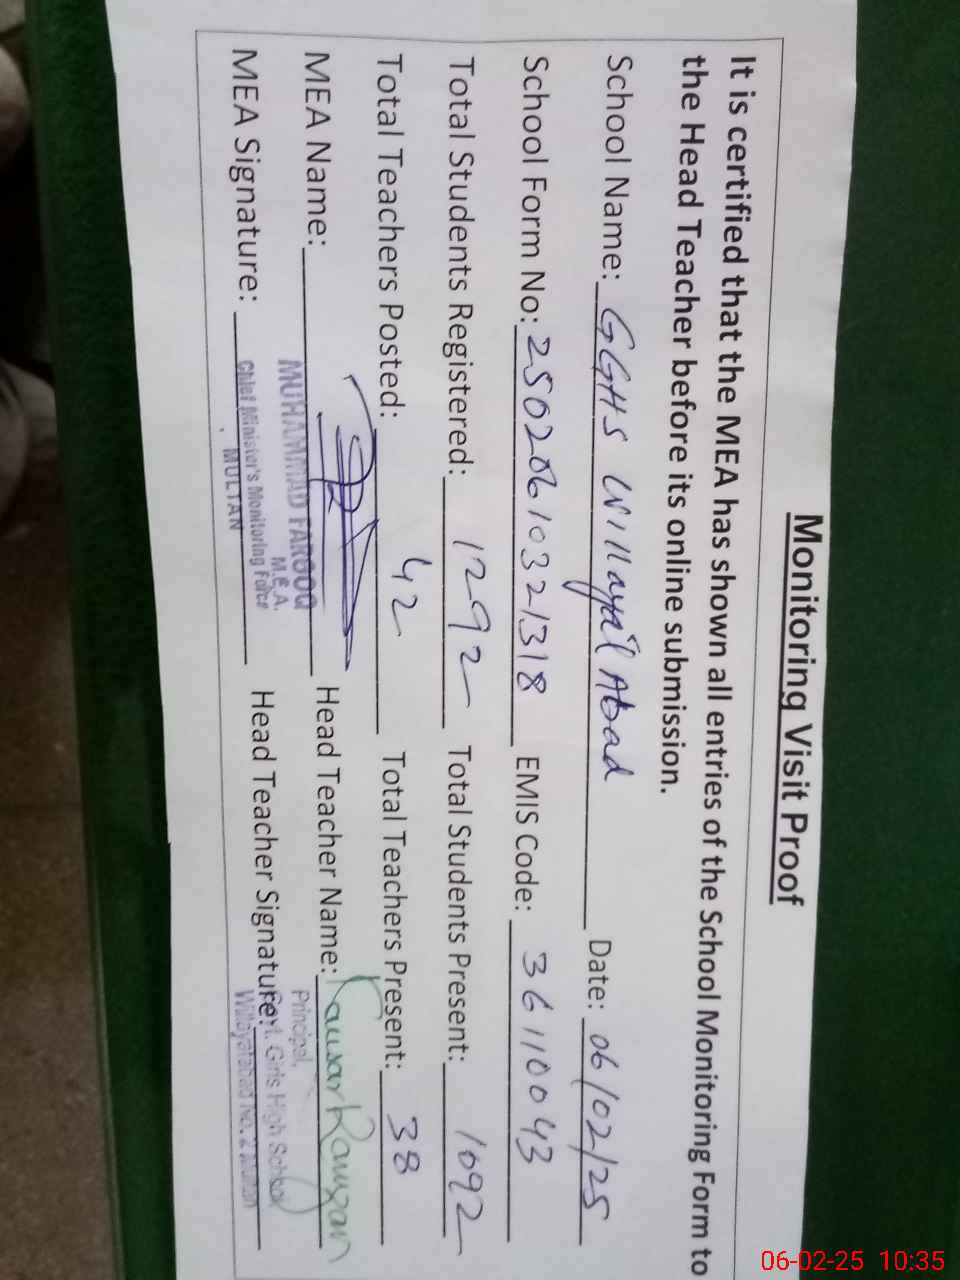 Monitoring Visit Proof
It is certified that the MEA has shown all entries of the School Monitoring Form to
the Head Teacher before its online submission.
School Name: GGHS Willayat Abad Date: 06/02/25
School Form No: 25020610321318 EMIS Code: 36110043
Total Students Registered: 1292 Total Students Present: 1092
Total Teachers Posted: 42 Total Teachers Present: 38
MEA Name: Head Teacher Name: Kausar Ramzan
MUHAMMAD FAROOQ
M.E.A.
Chief Minister's Monitoring Force
MULTAN
MEA Signature: Head Teacher Signature:
Principal,
Girls High School
Willayatabad No. 2 Multan
06-02-25 10:35